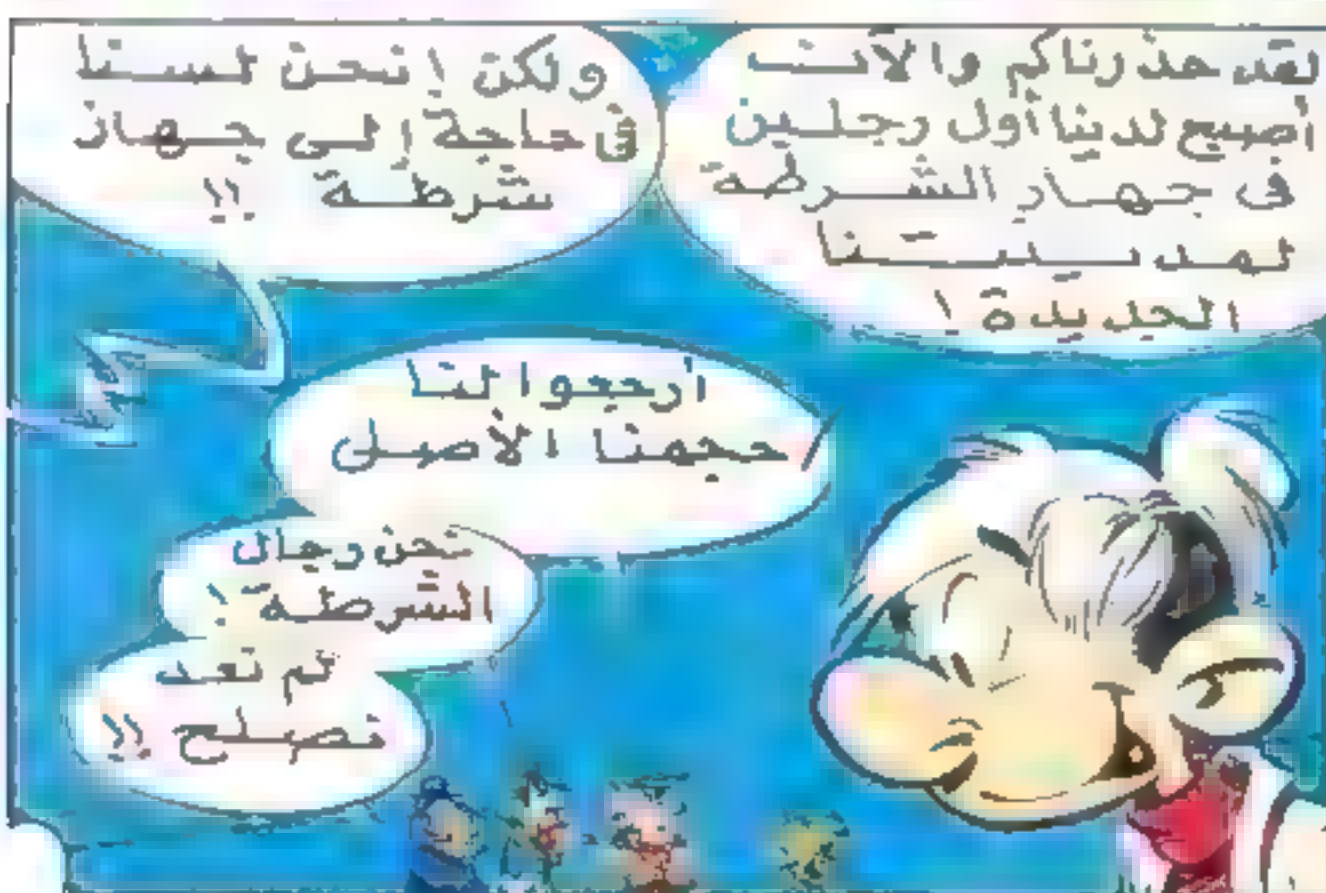 لقد حذرناكم والآن
أصبح لدينا أول رجلين
فى جهاز الشرطة
لمدينتنا
الجديدة !
ولكن ! نحن لسنا
فى حاجة إلى جهاز
شرطة !!
أرجعوا لنا
حجمنا الأصلى
نحن رجال
الشرطة !
لم نعد
نصلح !!